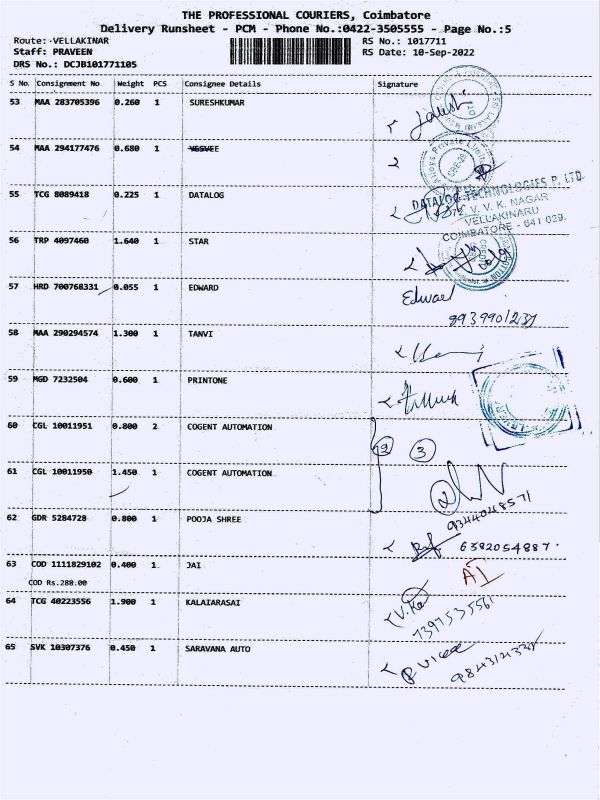 THE PROFESSIONAL COURIERS, Coimbatore
Delivery Runsheet - PCM - Phone No.:0422-3505555 - Page No.:5
Route: VELLAKINAR RS No.: 1017711
Staff: PRAVEEN RS Date: 10-Sep-2022
DRS No.: DCJB101771105
S No. Consignment No Weight PCS Consignee Details Signature
53 MAA 283705396 0.260 1 SURESHKUMAR
54 MAA 294177476 0.680 1 VESVEE
55 TCG 8089418 0.225 1 DATALOG
DATALOG TECHNOLOGIES P. LTD.
V. V. K. NAGAR
VELLAKINARU
COIMBATORE - 641 029.
56 TRP 4097460 1.640 1 STAR
57 HRD 700768331 0.055 1 EDWARD
Edward
8939901237
58 MAA 290294574 1.300 1 TANVI
59 MGD 7232504 0.600 1 PRINTONE
60 CGL 10011951 0.800 2 COGENT AUTOMATION
3
61 CGL 10011950 1.450 1 COGENT AUTOMATION
2
9344048571
62 GDR 5284728 0.800 1 POOJA SHREE
6382054887.
63 COD 1111829102 0.400 1 JAI
COD Rs.280.00
64 TCG 40223556 1.900 1 KALAIARASAI
7397535561
65 SVK 10307376 0.450 1 SARAVANA AUTO